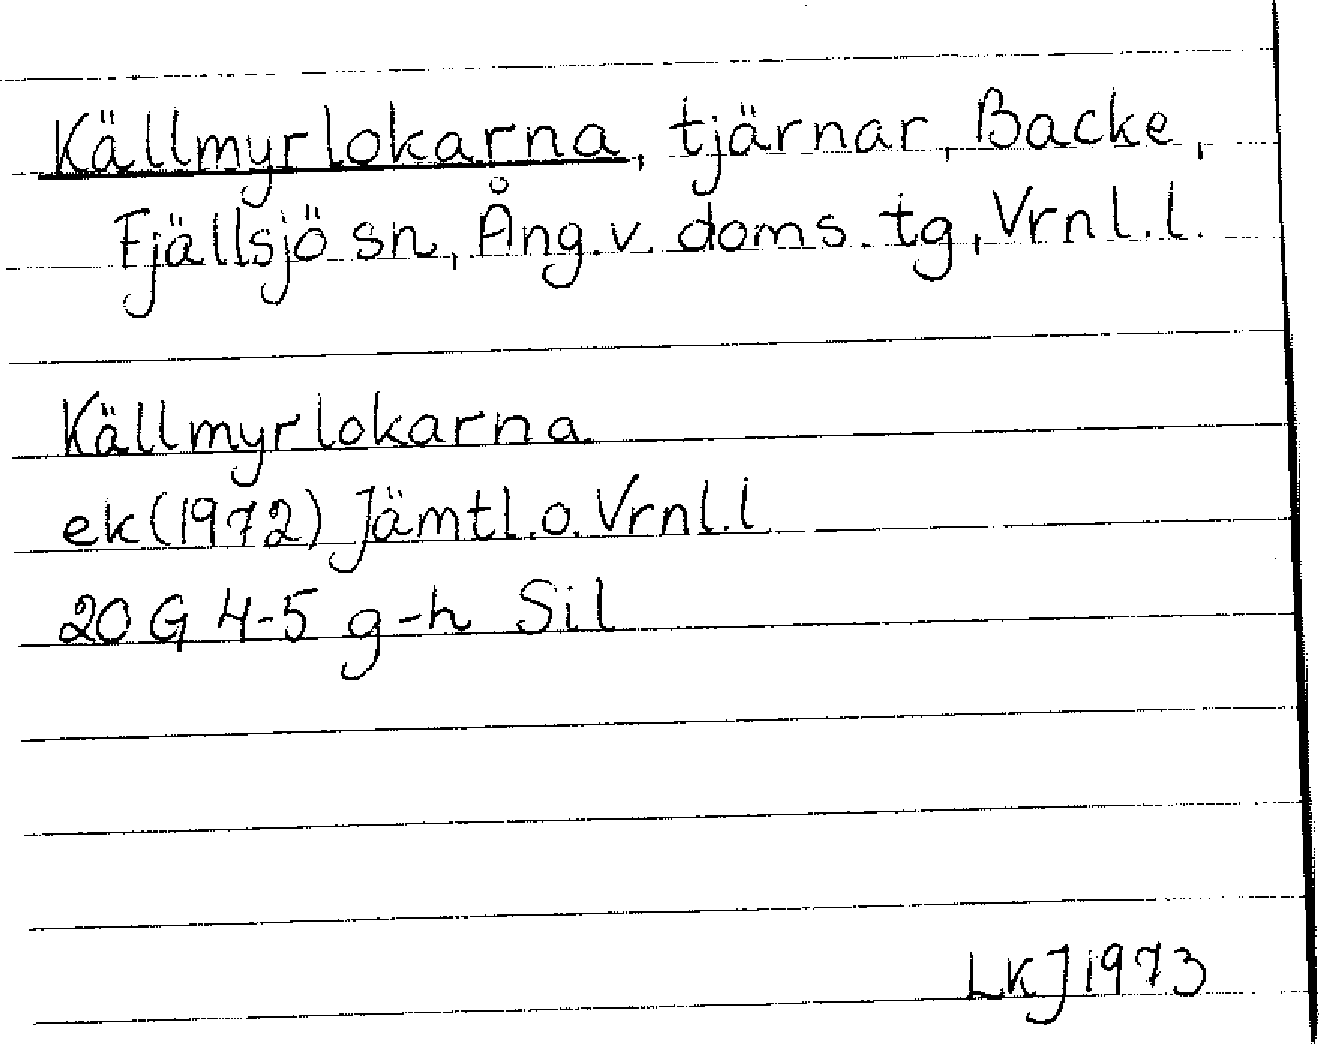 Källmyrlokarna, tjärnar, Backe,
Fjällsjö sn, Ång. v. doms. tg, Vrnl. l.
Källmyrlokarna
ek (1972) Jämtl. o. Vrnl. l
20 G 4-5 g-h Sil
LKJ 1973